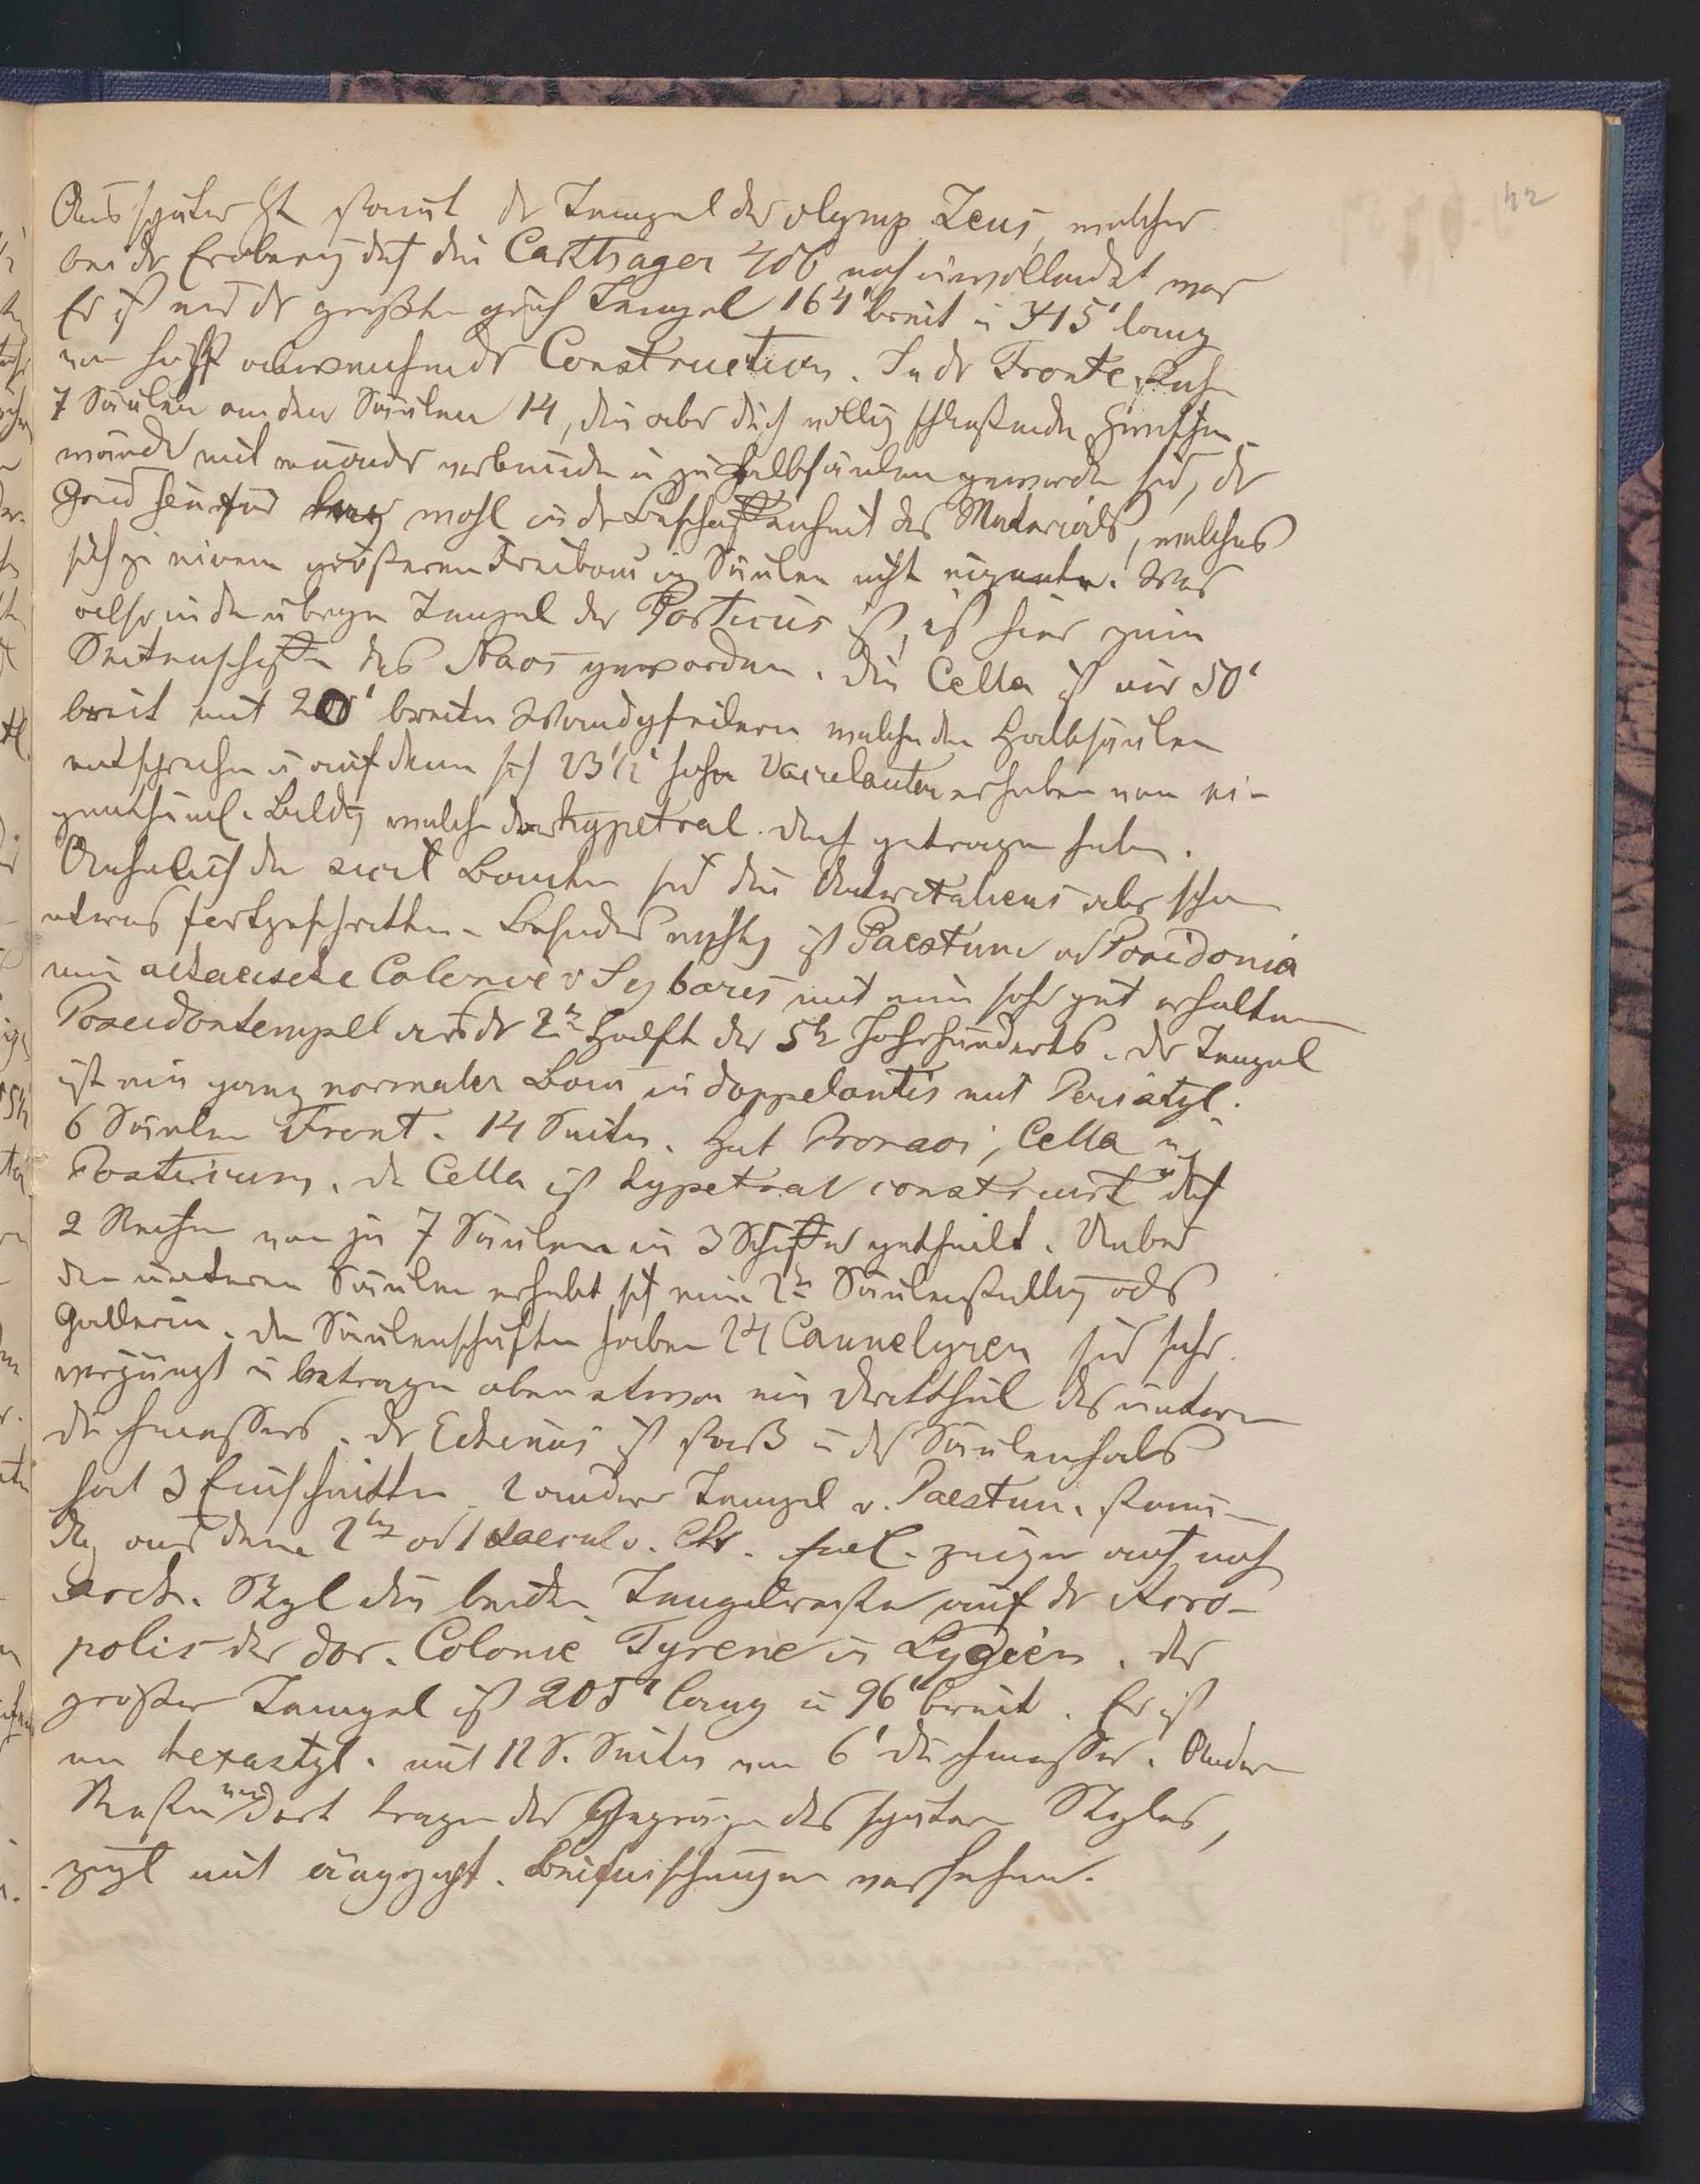 42
Aus späterer Zt stamt dr Tempel des olymp Zeus, welcher
bei dr Eroberg dch die Carthager 406 noch unvollendet war
Er ist eins dr größten griech Tempel 164' breit u 345' lang
von höchst abweichender Construction. In dr Fronte stehn
7 Säulen an den Säulen 14, die aber dch völlig schließende Zwischen-
wände mit einander verbunden u zu Halbsäulen geworden sid, dr
Grund hierfür lag wohl in dr Beschaffenheit des Materials, welches
sich zu einem größeren Freibau in Säulen nicht eignete. Was
also in den übrigen Tempel der Porticus ist, ist hier zum
Seitenschiffe des Naos geworden. Die Cella ist nur 50'
breit mit 20' breiten Wandpfeilern welche den Halbsäulen
entsprechen u auf denen sich 23 1/2' hohe erhoben von ei-
genthüml. Bildg welche das hypetral. Dach getragen haben.
Aehnlich den sicil Bauten sid die Unteritaliens aber schon
etwas fortgeschritten. Besonders wichtig ist Paestum od Posidonia
eine achaeische Colonie v Sybaris mit einem sehr gut erhaltenen
Poseidontempel aus dr 2ten Haelfte des 5t Jahrhunderts. Dr Tempel
ist ein ganz normaler Bau in doppelantis mit Peristyl.
6 Säulen Front. 14 Seiten. Hat Pronaos, Cella u
Posticum. Die Cella ist hypetral construirt u dch
2 Reihen von je 7 Säulen in 3 Schiffe getheilt. Ueber
den unteren Säulen erhebt sich eine 2te Säulenstellung als
Gallerie. Die Säulenschäfte haben 24 Cannelyren sid sehr
verjüngt u betragen oben etwa ein Dritttheil des untern
Durchmessers. Dr Echinus ist straff u der Säulenhals
hat 3 Einschnitte. 2 andere Tempel v. Paestum. stam-
en aus dem 2ten od 1 saecul v. Chr. zeigen auch noch
arch. Styl die beiden Tempelreste auf dr Acro-
polis der dor. Colonie Tyrene in Lygien. der
größere Tempel ist 205' lang u 96' breit. Er ist
ein hexastyl. mit 12 S. Seiten von 6' Durchmesser. Andere
Reste dort tragen das Gepräge des späteren Styles,
mit äegypt. Beimischungen versehen.